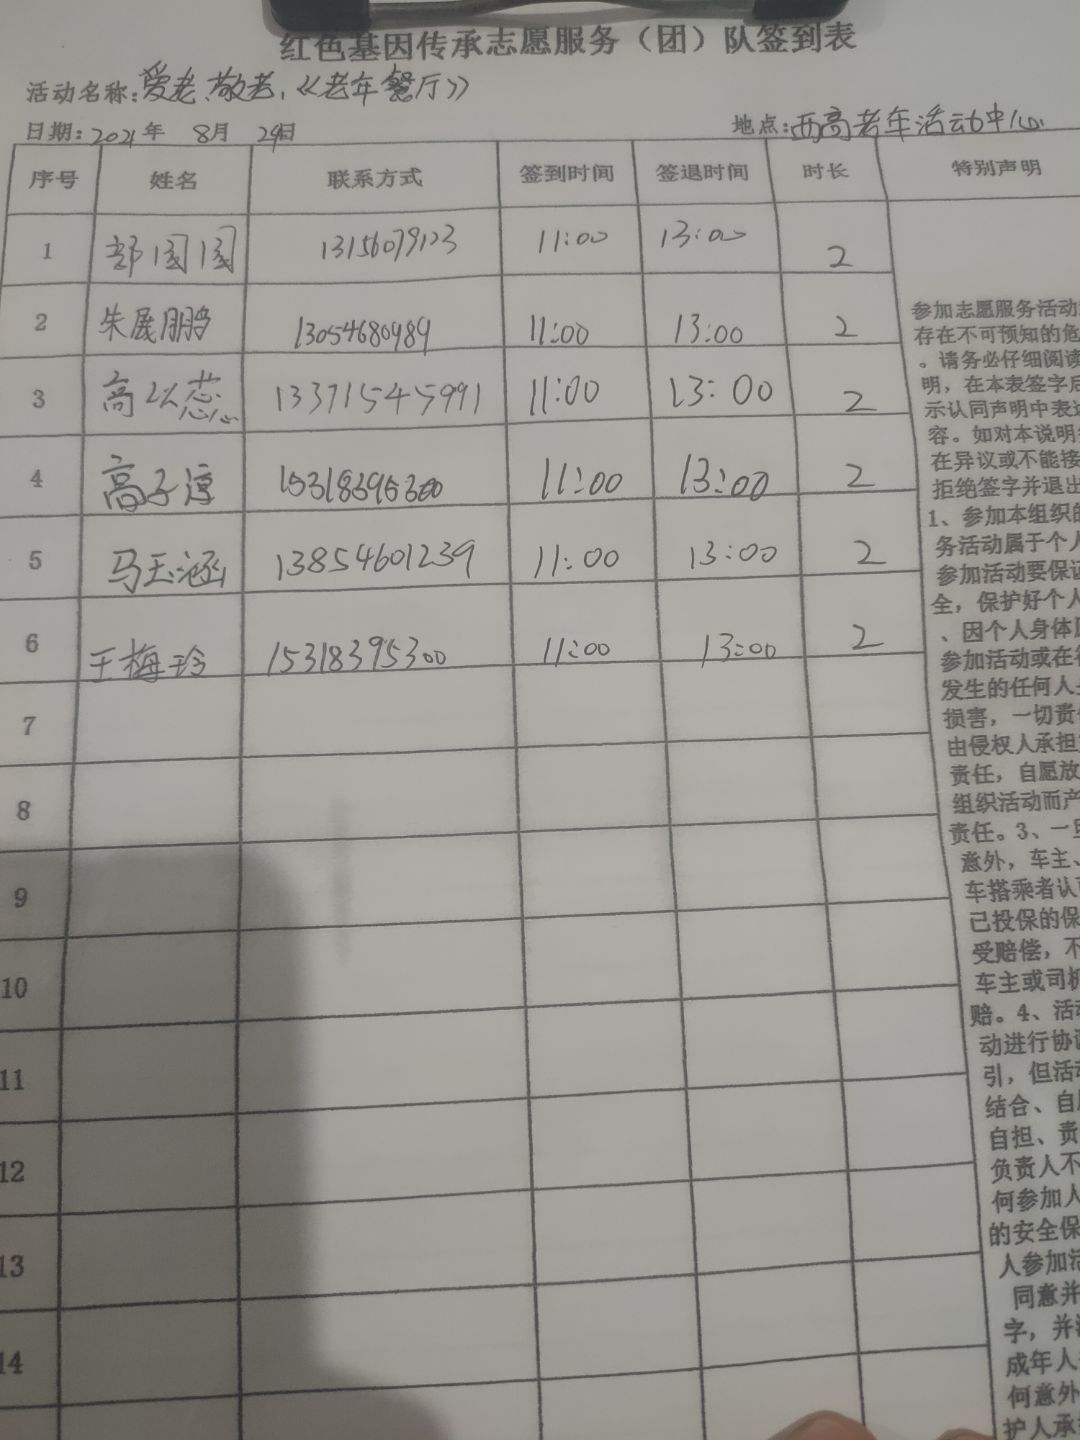 红色基因传承志愿服务（团）队签到表
活动名称：爱老、敬老，《老年餐厅》
日期：2021年 8月 29日 地点：西高老年活动中心
序号 姓名 联系方式 签到时间 签退时间 时长 特别声明
1 国国 13156079123 11:00 13:00 2
2 朱展鹏 13054680989 11:00 13:00 2
3 高以蕊 13371545991 11:00 13:00 2
4 高子淳 15318395300 11:00 13:00 2
5 马玉涵 13854601239 11:00 13:00 2
6 王梅玲 15318395300 11:00 13:00 2
7
8
9
10
11
12
13
14
参加志愿服务活动
存在不可预知的危
。请务必仔细阅读
明，在本表签字后
示认同声明中表
容。如对本说明
在异议或不能接
拒绝签字并退出
1、参加本组织的
务活动属于个人
参加活动要保证
全，保护好个人
、因个人身体原
参加活动或在
发生的任何人
损害，一切责
由侵权人承担
责任，自愿放
组织活动而产
责任。3、一旦
意外，车主、
车搭乘者认
已投保的保
受赔偿，不
车主或司机
赔。4、活动
动进行协
引，但活动
结合、自
自担、责
负责人不
何参加人
的安全保
人参加活
同意并
字，并
成年人
何意外
护人承